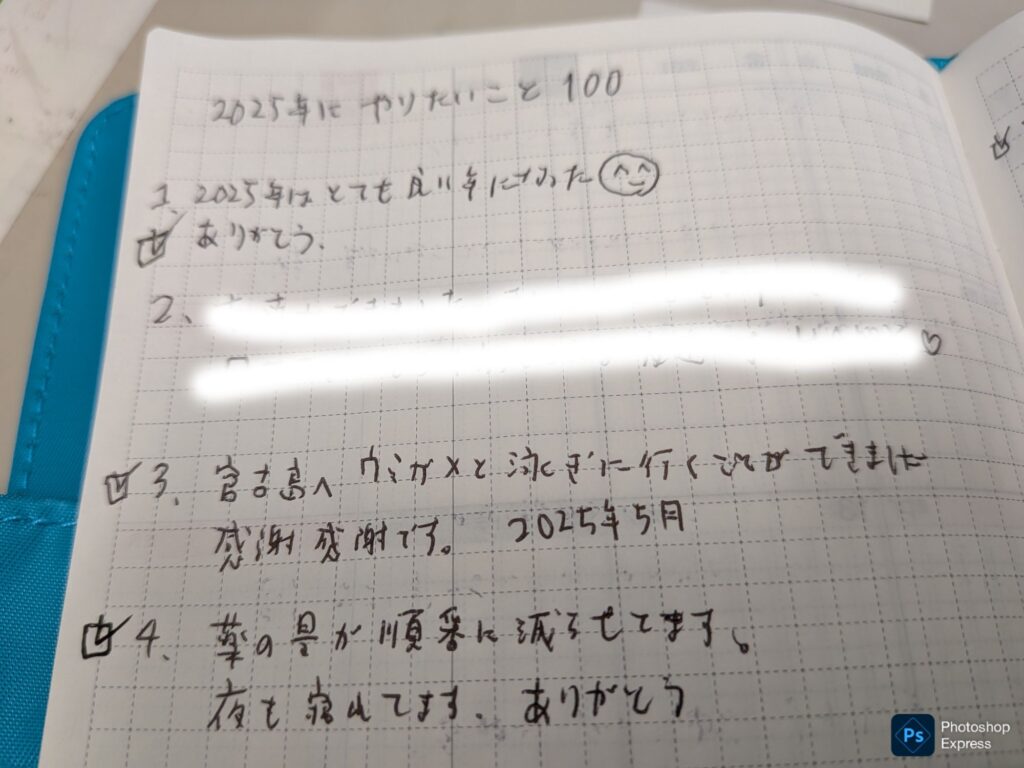 2025年に やりたいこと 100
1. 2025年は とても 良い年になった
ありがとう.
2、
3. 宮古島へ ウミガメと泳ぎに行くことができました
感謝感謝です。 2025年5月
4. 薬の量が順番に減らせてます。
夜も寝れてます. ありがとう
Ps Photoshop
Express